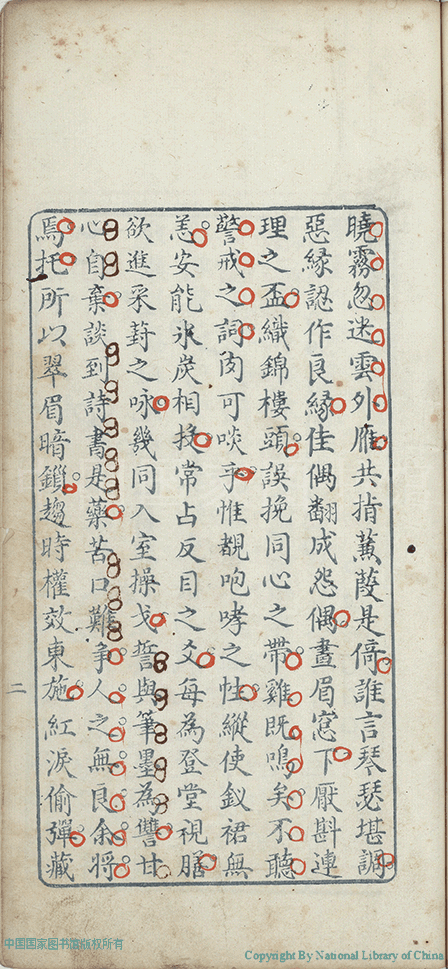 曉霧忽迷雲外雁共指蒹葭是倚誰言琴瑟堪調
惡緣認作良緣佳偶翻成怨偶畫眉窓下厭斟連
理之盃織錦樓頭誤挽同心之帶雞既鳴矣不聽
警戒之詞肉可啖乎惟覩咆哮之性縱使釵裙無
恙安能氷炭相投常占反目之爻每為登堂視膳
欲進采葑之咏幾同入室操戈誓與筆墨為讐甘
心自棄談到詩書是藥苦口難爭人之無良余將
焉托所以翠眉暗鎖趨時權效東施紅淚偷彈藏
二
中国国家图书馆版权所有
Copyright By National Library of China